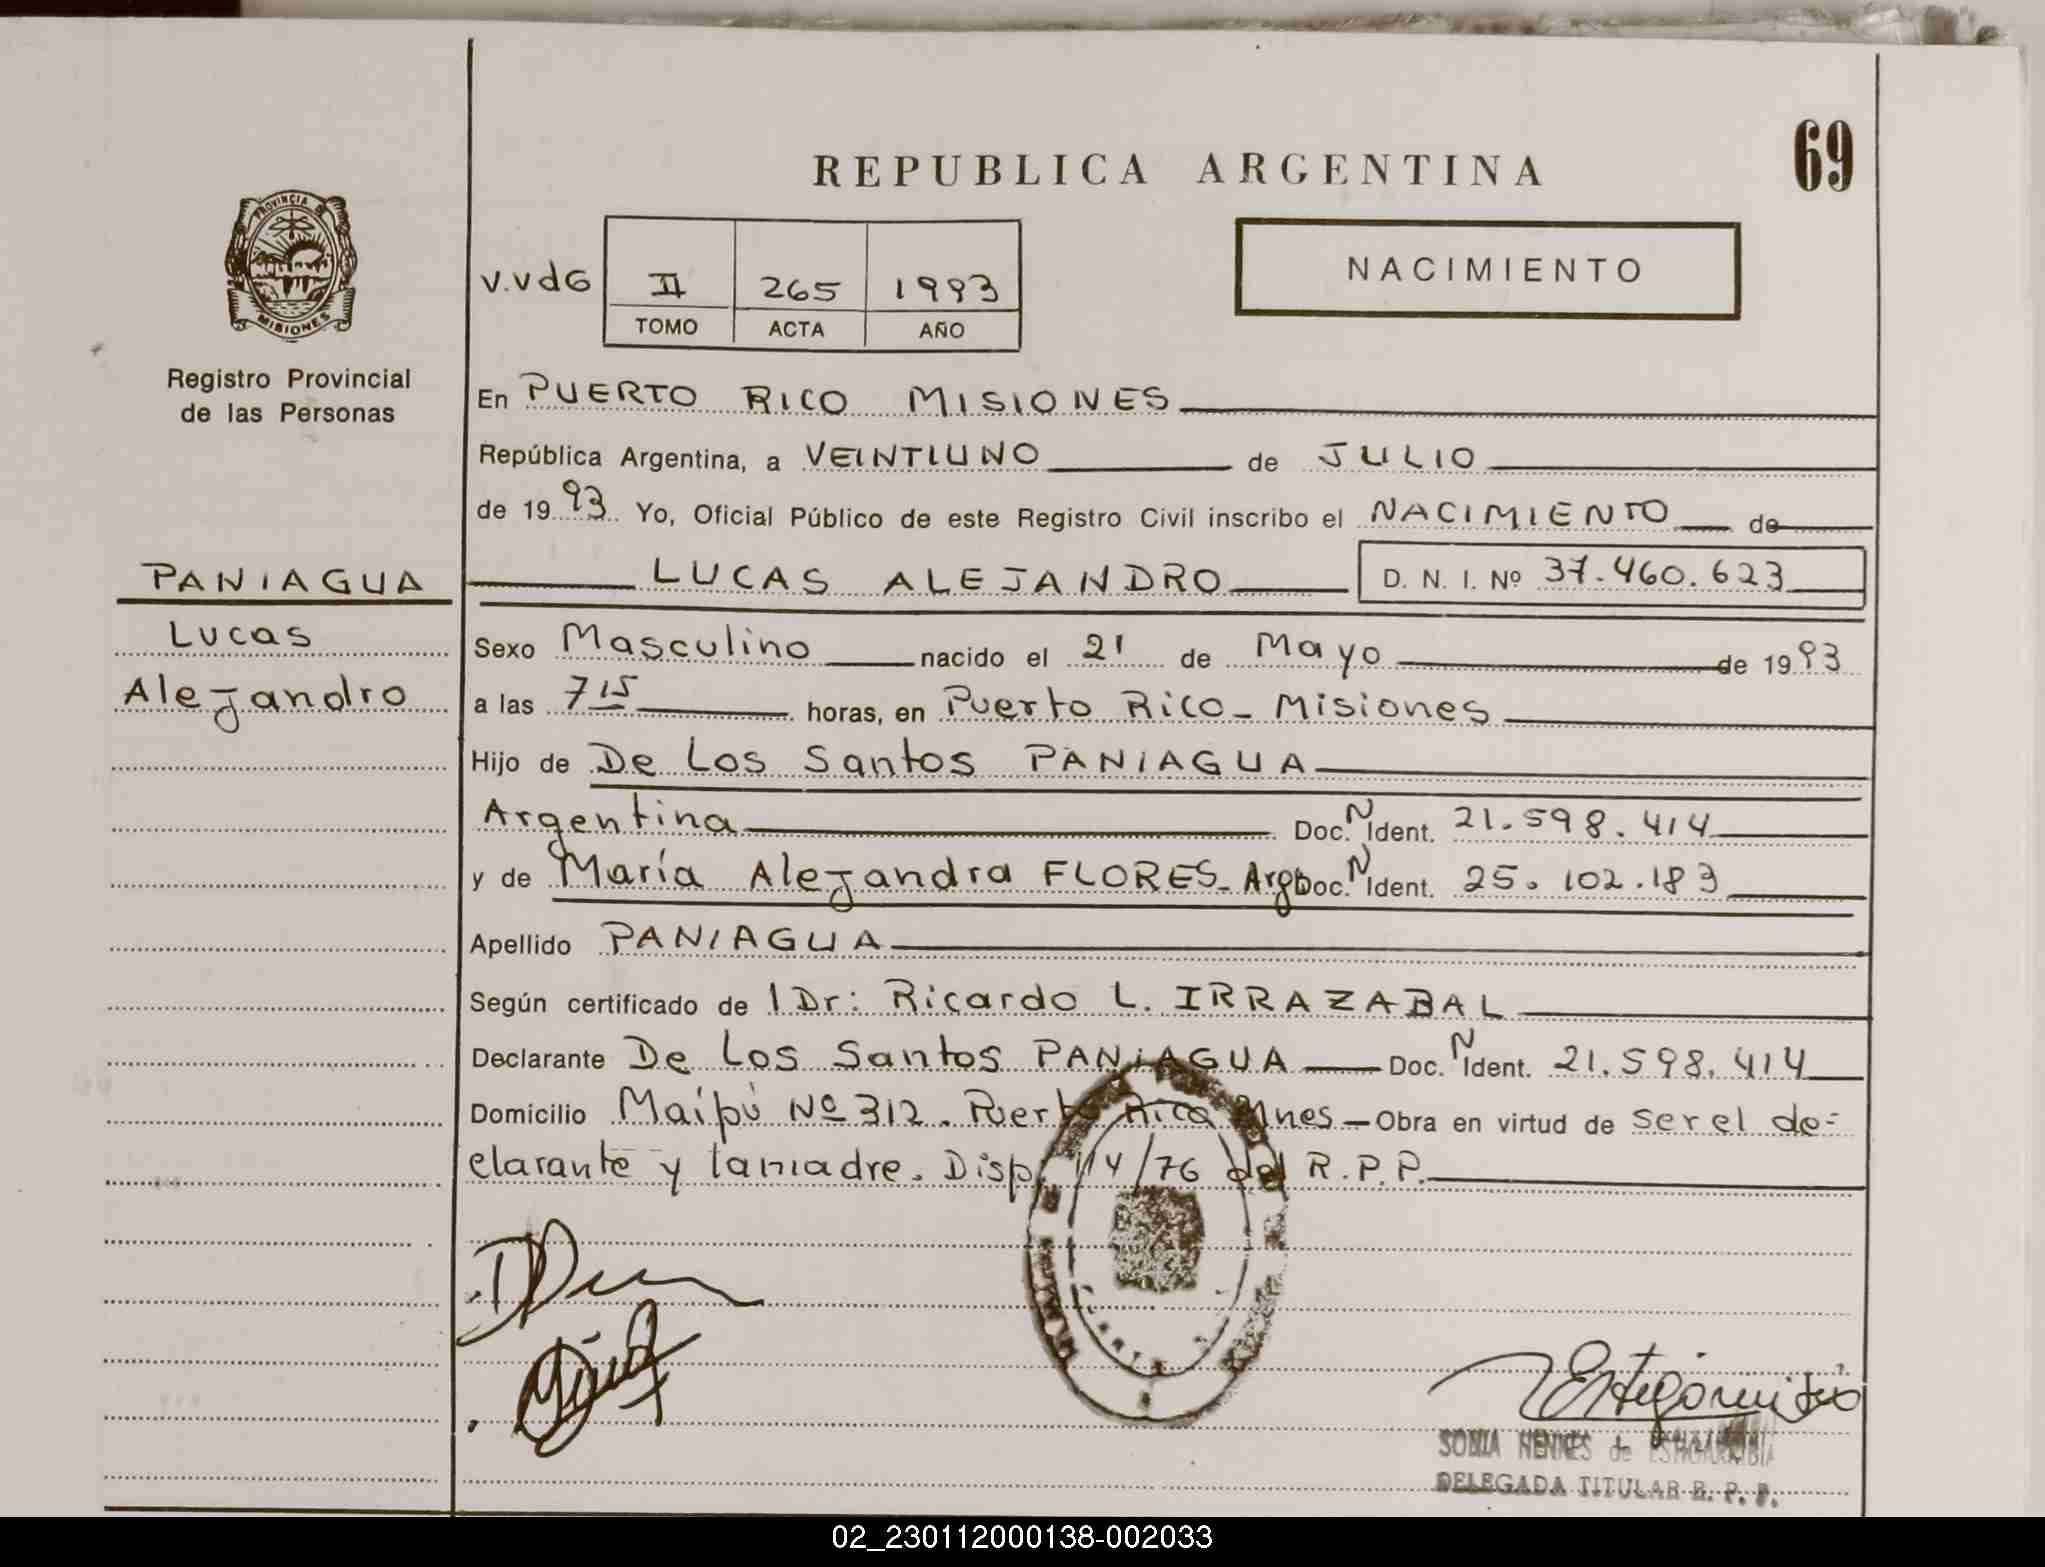 REPUBLICA ARGENTINA
69
PROVINCIA DE
MISIONES
Registro Provincial
de las Personas
V.VdG
II 265 1993
TOMO ACTA AÑO
NACIMIENTO
En PUERTO RICO MISIONES
República Argentina, a VEINTIUNO de JULIO
de 1993 Yo, Oficial Público de este Registro Civil inscribo el NACIMIENTO de
PANIAGUA
Lucas
Alejandro
LUCAS ALEJANDRO D. N. I. Nº 37.460.623
Sexo Masculino nacido el 21 de Mayo de 1993
a las 7 15 horas, en Puerto Rico - Misiones
Hijo de De Los Santos PANIAGUA
Argentina Doc. N Ident. 21.598.414
y de María Alejandra FLORES - Arg Doc. N Ident. 25.102.183
Apellido PANIAGUA
Según certificado de l Dr: Ricardo L. IRRAZABAL
Declarante De Los Santos PANIAGUA Doc. N Ident. 21.598.414
Domicilio Maípú Nº 312. Puerto Rico Mnes - Obra en virtud de ser el de-
clarante y la madre. Disp. 114/76 del R.P.P.
SONIA HENNES de
DELEGADA TITULAR R. P. P.
02_230112000138-002033